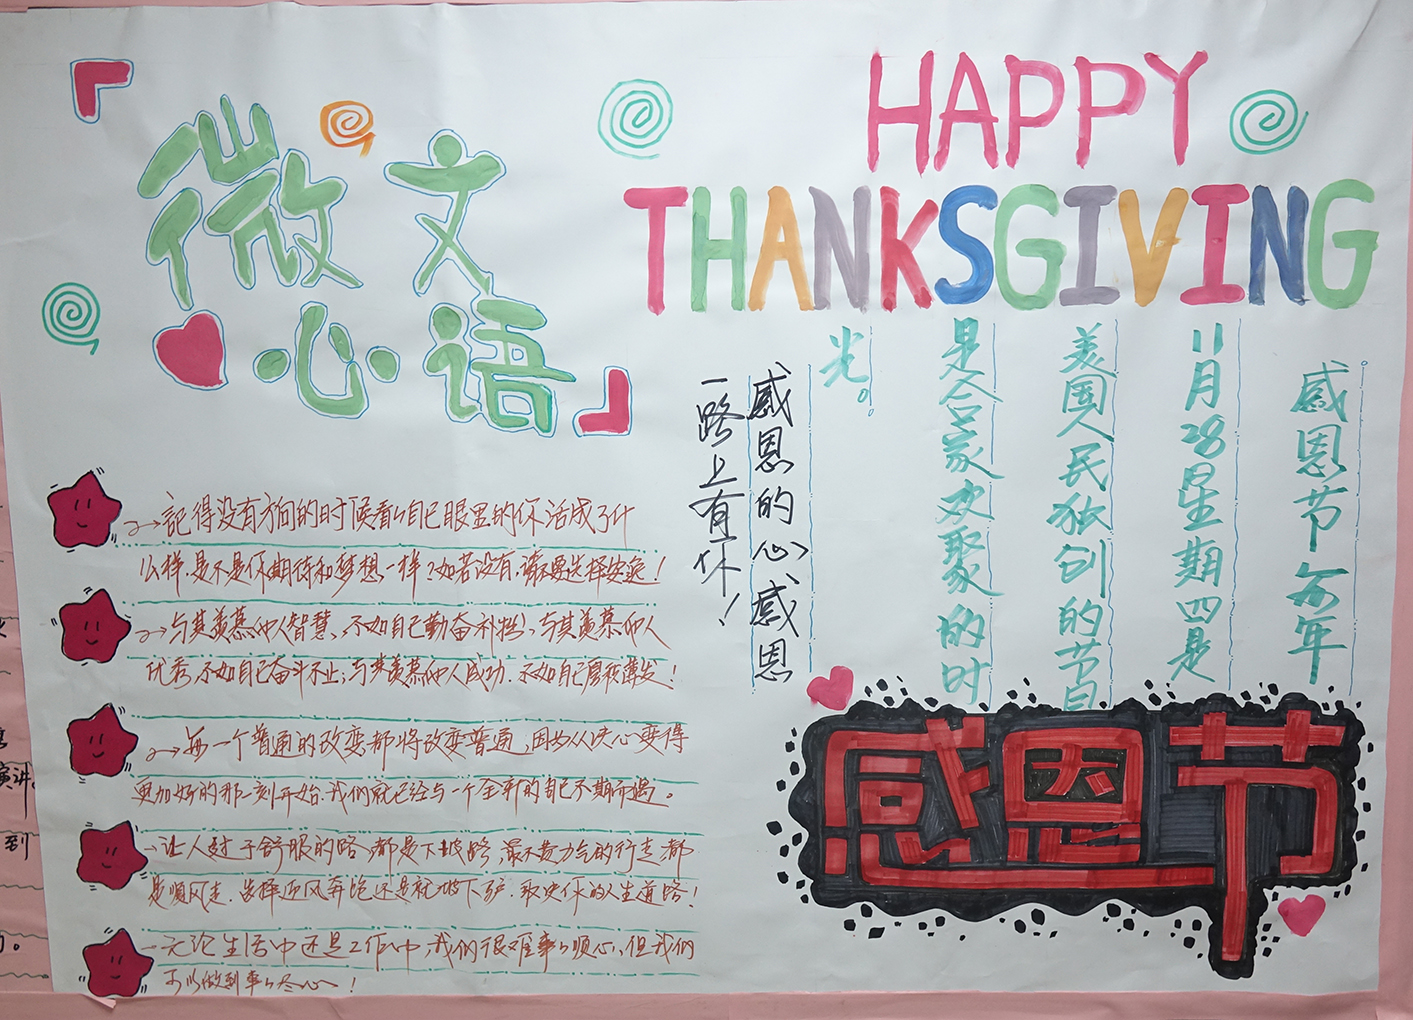 「微文
心语」
HAPPY
THANKSGIVING
記得没有方向的时候看看自己眼里的你活成了什
么样,是不是你期待和梦想一样?如若没有,请不要选择安逸!
与其羡慕他人智慧,不如自己勤奋补拙;与其羡慕他人
优秀,不如自己奋斗不止;与其羡慕他人成功,不如自己厚积薄发!
每一个普通的改变都将改变普通,因为从决心变得
更加好的那一刻开始,我们就已经与一个全新的自己不期而遇。
让人过于舒服的路,都是下坡路,最不费力气的行走都
是顺风走,选择迎风奔跑还是就坡下驴,取决你的人生道路!
无论生活中还是工作中,我们很难事事顺心,但我们
可以做到事事尽心!
感恩节每年
11月28星期四是
美国人民独创的节日
是合家欢聚的时
光。
感恩的心感恩
一路上有你!
感恩节
演讲。
到